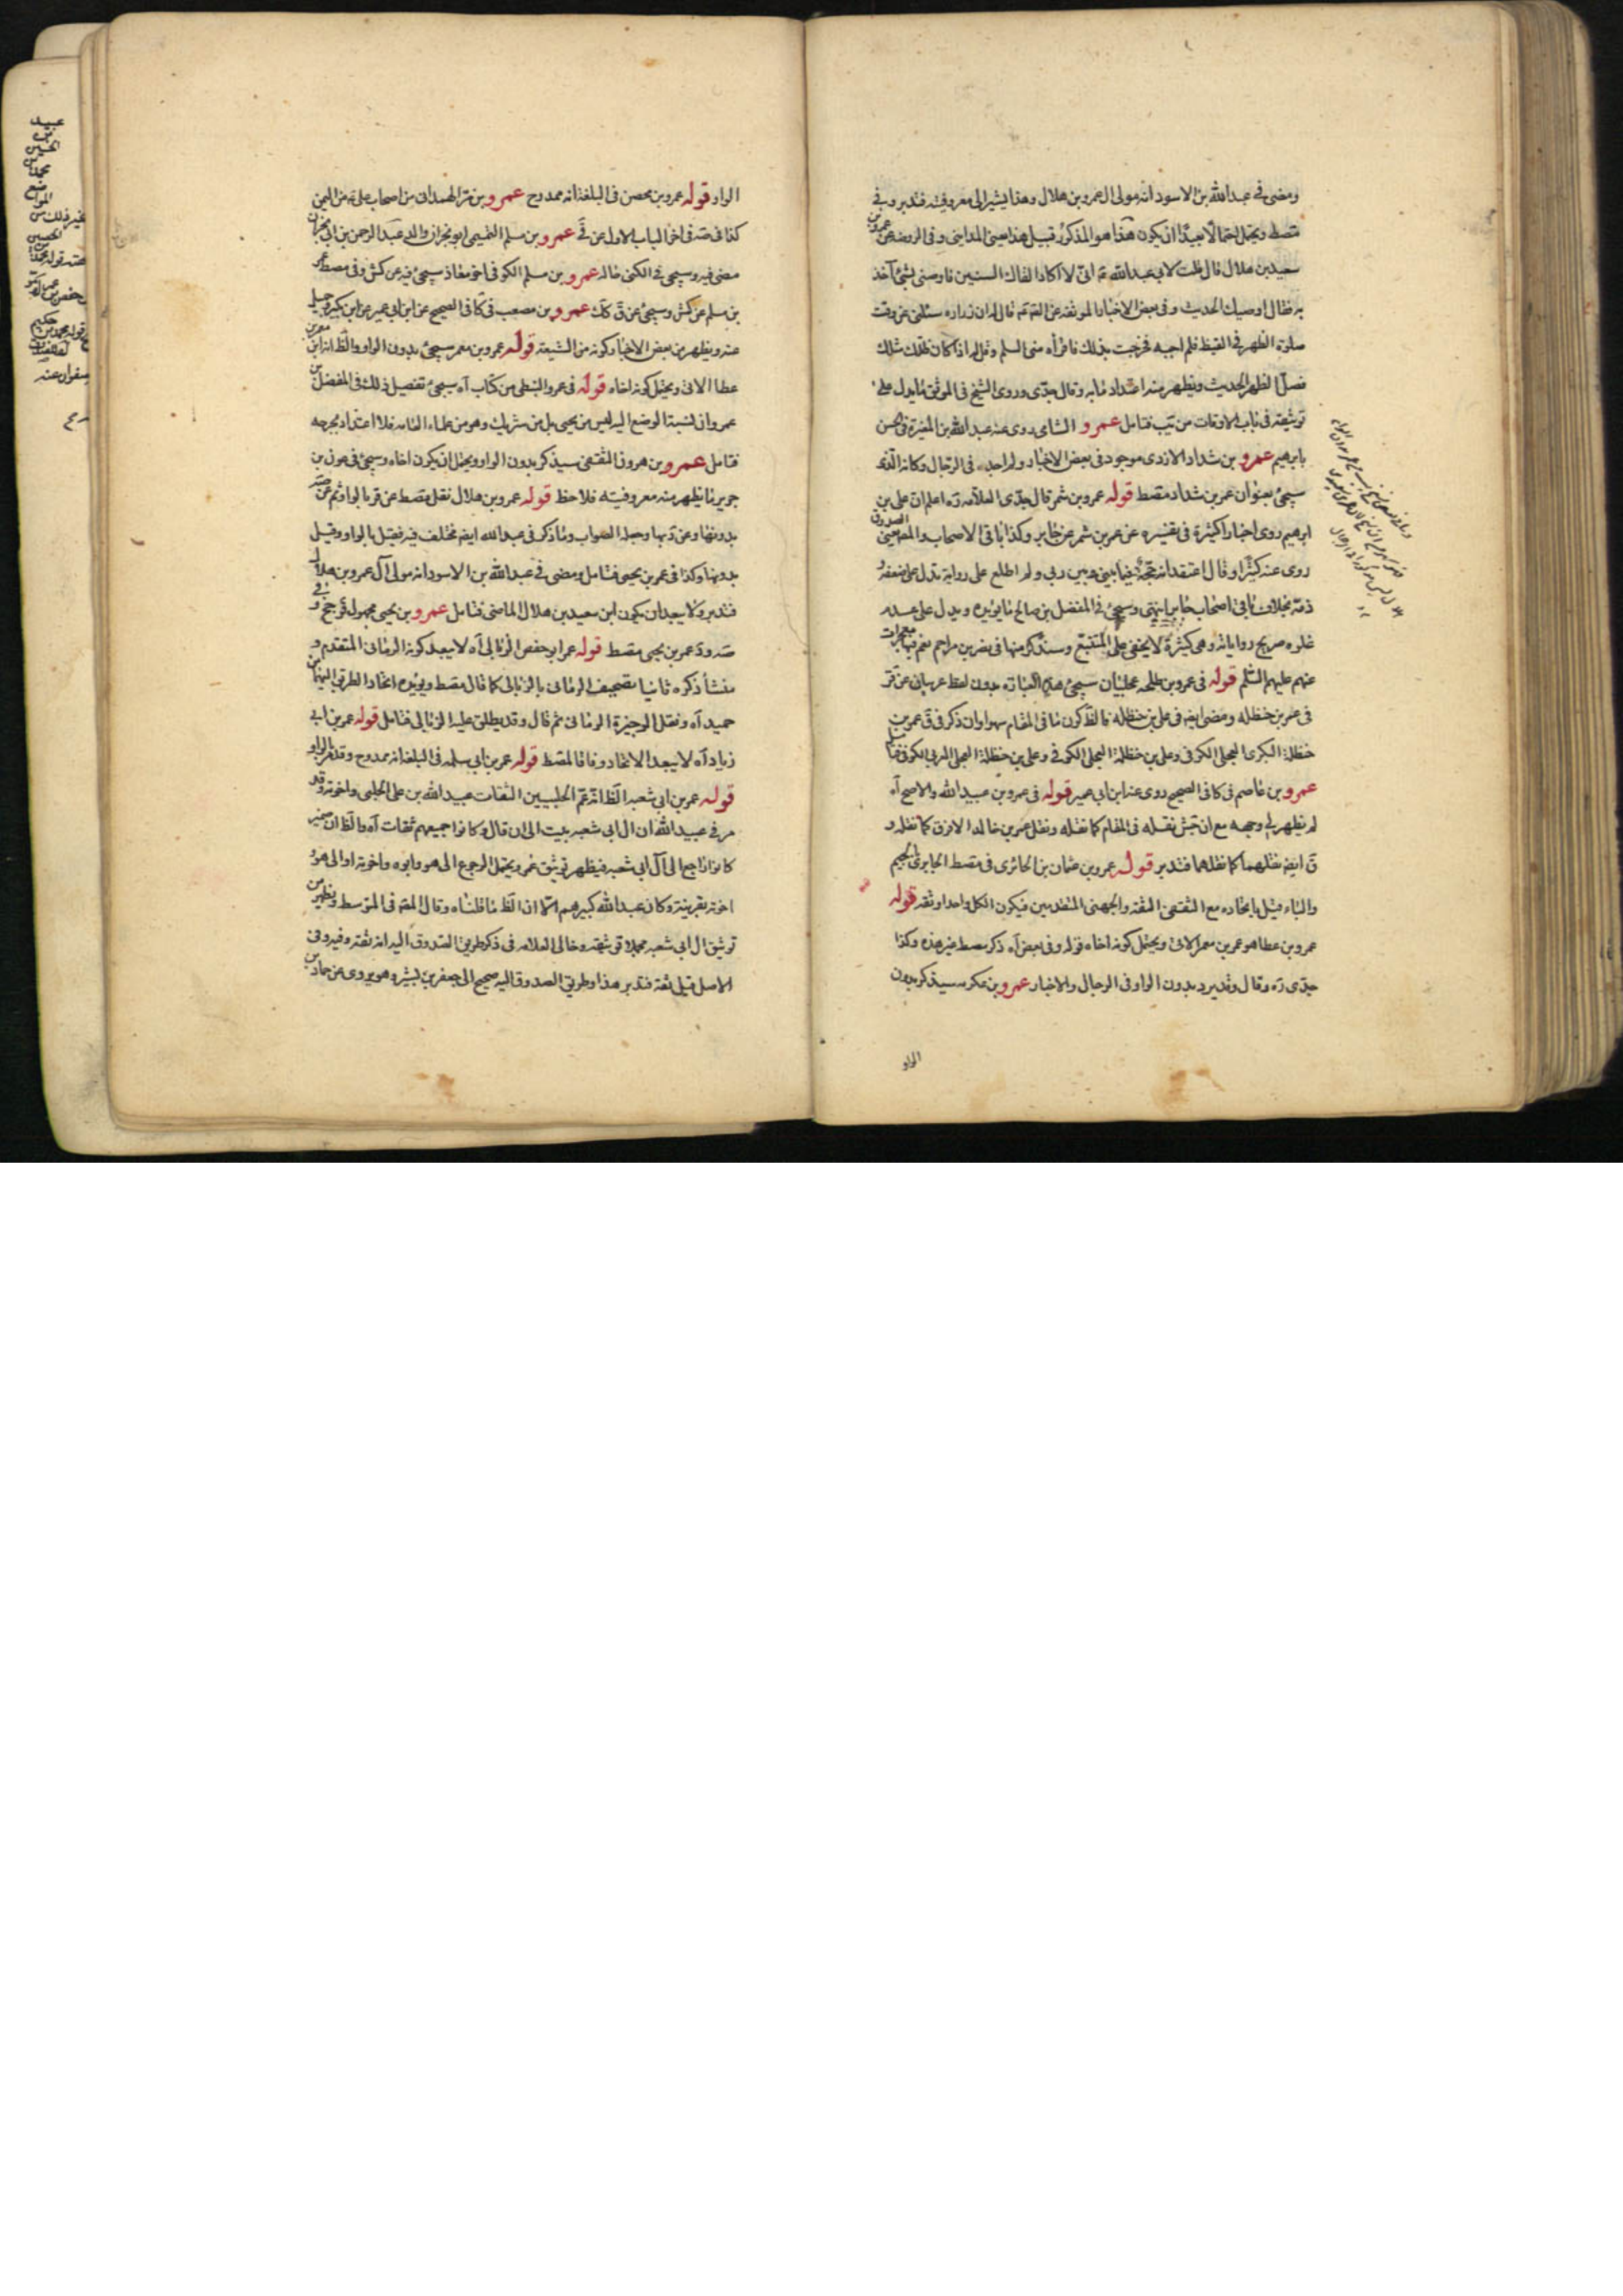 ومضى في عبدالله بن الاسود انه مولى ال عمرو بن هلال وهذا يشير الى معروفيته فتدبر وفي
مصط ويحتمل احتمالا بعيدا ان يكون هذا هو المذكور قبيل هذا بعنى المدايني وفي الروضة عن عمرو بن
سعيد بن هلال قال قلت لابي عبدالله ع انى لا اكاد القاك الا السنين فاوصنى بشئ آخذ
به فقال اوصيك الحديث وفي بعض الاخبار الموثقة عن الصم قال له ان زراره سئلنى عن وقت
صلوة الظهر في القيظ فلم اجبه فخرجت بذلك فاقرأه منى السلم وقل له اذا كان ظلك مثلك
فصل الظهر الحديث ويظهر منه اعتداد ما به وقال جدى وروى الشيخ في الموثق ما يدل على
توثيقه في باب الاوقات من تيب فتامل عمرو الشامى روى عنه عبدالله بن المغيرة في الحسن
بابرهيم عمرو بن شداد الازدى موجود في بعض الاخبار ولم اجده في الرجال وكانه الذى
سيجئ بعنوان عمر بن شداد مصط قوله عمرو بن شمر قال جدى العلامه ره اعلم ان على بن
ابرهيم روى اخبارا كثيرة في تفسيره عن عمر بن شمر عن جابر وكذا باقى الاصحاب والصدوق
روى عنه كثيرا وقال اعتقد انه حجة فيما بينى وبين ربي ولم اطلع على رواية تدل على ضعفه و
ذمه بخلاف باقى اصحاب جابر انتهى وسيجئ في المفضل بن صالح ما يؤيده ويدل على عدم
غلوه صريح رواياته وهي كثيرة لا يخفى على المتتبع وسنذكر منها في نصر بن مزاحم نعم فيها معجزات
عنهم عليهم السلم قوله في عمرو بن طلحه عجليان سيجئ هذه العبارة بدون لفظ عربيان عن قر
في عمر بن حنظله ومضى ايضا في على بن حنظله فالظ كون ما في المقام سهوا وان ذكر في ق عمر بن
حنظلة البكرى العجلى الكوفى وعلى بن حنظلة العجلى الكوفى وعلى بن حنظلة العجلى العربي الكوفى فتامل
عمرو بن عاصم في كافى الصحيح روى عنه ابن ابي عمير قوله في عمرو بن عبيدالله والاصح آه
لم يظهر لي وجهه مع ان جش نقله في المقام كما نقله ونقل عمر بن خالد الازرق كما نقله و
ق ايضا نقلهما كما نقلهما فتدبر قوله عمرو بن عثمان بن الجابرى في مصط الجابرى بالجيم
والباء قيل باتحاده مع الثقفى الثقة والجهنى المتقدمين فيكون الكل واحدا وثقه قوله
عمرو بن عطا هو عمر بن معمر الاتى ويحتمل كونه اخاه قوله وفي بعض آه ذكر مصط غير هذه وكذا
جدى ره وقال وقد يرد بدون الواو في الرجال والاخبار عمرو بن عكرمه سيذكر بدون
الواو
الواو قوله عمرو بن محصن في البلغة انه ممدوح عمرو بن مر الهمدانى من اصحاب على ع من اليمن
كذا في صه في آخر الباب الاول عن قى عمرو بن مسلم التميمى ابو نجران والد عبد الرحمن بن ابي نجران
مضى فيه وسيجئ في الكنى حاله عمرو بن مسلم الكوفى اخو معاذ سيجئ فيه عن كش وفي مصط عمر
بن مسلم عن كش وسيجئ عن ق كذلك عمرو بن مصعب في كافى الصحيح عن ابن ابي عمير عن ابن بكير وجميل
عنه ويظهر من بعض الاخبار كونه من الشيعة قوله عمرو بن معمر سيجئ بدون الواو والظ انه ابن
عطا الاتى ويحتمل كونه اخاه قوله في عمرو النبطى من كتاب آه سيجئ تفصيل ذلك في المفضل بن
عمر وان نسبة الوضع اليه ليس من يحيى بل من شريك وهو من علماء العامه فلا اعتداد بجرحه
فتامل عمرو بن هرون الثقفى سيذكر بدون الواو ويحتمل ان يكون اخاه وسيجئ في عون بن
جرير ما يظهر منه معروفيته فلاحظ قوله عمرو بن هلال نقل مصط عن قر بالواو ثم عن صه
بدونها وعن د بها وجعله الصواب وما ذكر في عبدالله ايضا مختلف فيه فقيل بالواو وقيل
بدونها وكذا في عمر بن يحيى فتامل ومضى في عبدالله بن الاسود انه مولى آل عمرو بن هلال
فتدبر ولا يبعد ان يكون ابن سعيد بن هلال الماضى فتامل عمرو بن يحيى مجهول قر جخ وفي
صه ود عمر بن يحيى مصط قوله عمر ابو حفص الزبالى آه لا يبعد كونه الرمانى المتقدم و
منشأ ذكره ثانيا تصحيف الرمانى بالزبالى كما قال مصط ويؤيده اتحاد الطرق اليهما من
حميد آه ونقل الوجيزة الرمانى ثم قال وقد يطلق عليه الزبالى فتامل قوله عمر بن ابي
زياد آه لا يبعد الاتحاد وفاقا لمصط قوله عمر بن ابي سلمه في البلغة انه ممدوح وقد مر بالواو
قوله عمر بن ابي شعبه الظ انه عم الحلبيين الثقات عبيدالله بن على الحلبى واخوته وقد
مر في عبيدالله ان ال ابي شعبه بيت الى ان قال وكانوا جميعهم ثقات آه والظ ان ضمير
كانوا راجع الى آل ابي شعبه فيظهر توثيق عمر ويحتمل الرجوع الى هو وابوه واخوته او الى هو و
اخوته بقرينة وكان عبدالله كبيرهم الا ان الظ ما قلناه وقال المصه في المتوسط ويظهر من
توثيق ال ابي شعبه مجملا توثيقه وخالى العلامه في ذكر طريق الصدوق اليه انه ثقة وفيه وفى
الاصل قيل ثقة فتدبر هذا وطريق الصدوق اليه صحيح الى جعفر بن بشير وهو يروى عن حماد بن